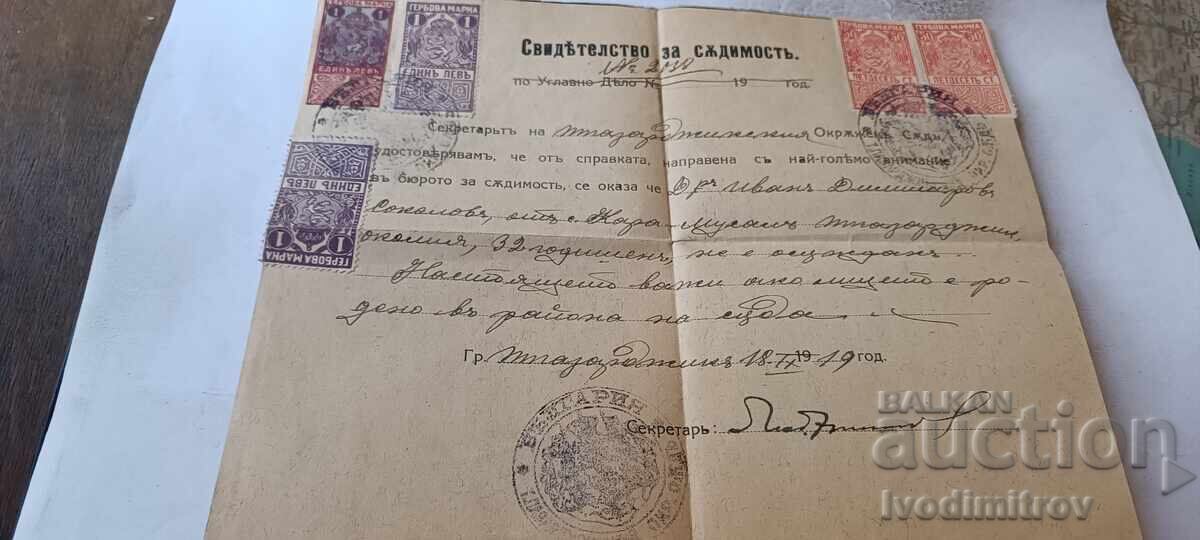 ГЕРБОВА МАРКА
1 1
ЕДИНЪ ЛЕВЪ
ГЕРБОВА МАРКА
1 1
ЕДИНЪ ЛЕВЪ
ГЕРБОВА МАРКА
50 50
ПЕТДЕСЕТЬ СТ.
ГЕРБОВА МАРКА
50 50
ПЕТДЕСЕТЬ СТ.
Свидѣтелство за сѫдимость.
по Углавно Дѣло № 19 год.
Секретарьтъ на Т. Пазарджишкия Окрѫженъ Сѫдъ,
удостовѣрявамъ, че отъ справката, направена съ най-голѣмо внимание
въ бюрото за сѫдимость, се оказа че Д-ръ Иванъ Димитровъ
Соколовъ, отъ с. Кара-Мусалъ Т. Пазарджишка
околия, 32 годишенъ, не е осѫжданъ.
Настоящето важи ако лицето е ро-
дено въ района на сѫда.
Гр. Т. Пазарджикъ 18.IX 1919 год.
Секретарь:
ГЕРБОВА МАРКА
1 1
ЕДИНЪ ЛЕВЪ
BALKAN
Auction
Ivodimitrov